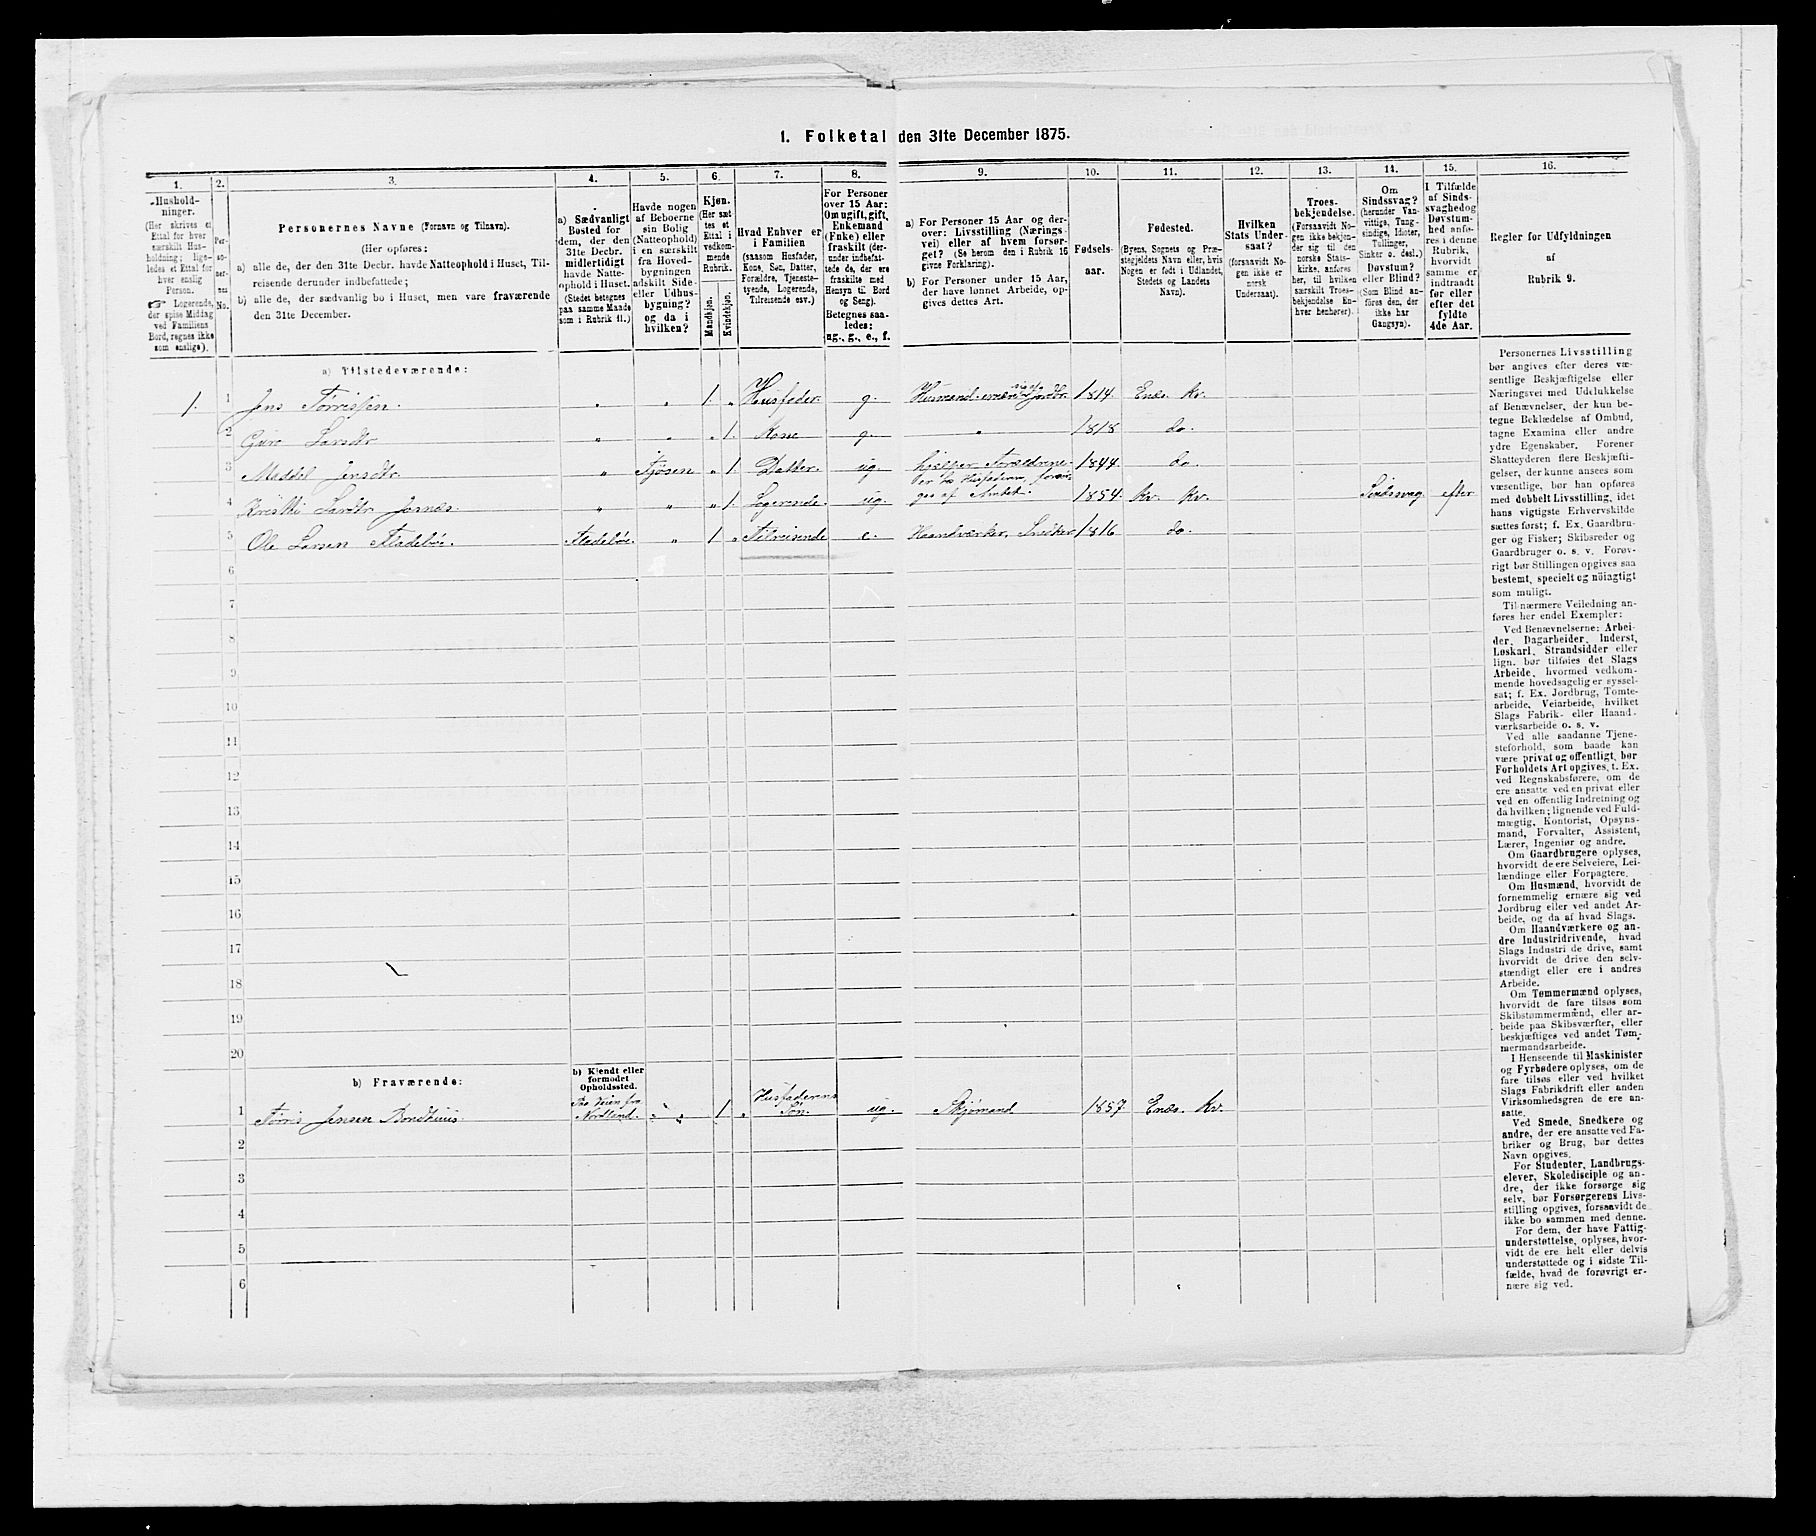 1. Folketal den 31te December 1875.
1.
2.
3.
4.
5.
6.
7.
8.
9.
10.
11.
12.
13.
14.
15.
16.
Hushold-
ninger.
(Her skrives et
Ettal for hver
særskilt Hus-
holdning; lige-
ledes et Ettal for
hver enslig
Person.
☞ Logerende,
der spise Middag
ved Familiens
Bord, regnes ikke
som enslige).
Per-
so-
ner-
nes
No.
Personernes Navne (Fornavn og Tilnavn).
(Her opføres:
a) alle de, der den 31te Decbr. havde Natteophold i Huset, Til-
reisende derunder indbefattede;
b) alle de, der sædvanlig bo i Huset, men vare fraværende
den 31te December.
a) Sædvanligt
Bosted for
dem, der den
31te Decbr.
midlertidigt
havde Natte-
ophold i Huset.
(Stedet betegnes
paa samme Maade
som i Rubrik 11.)
Havde nogen
af Beboerne
sin Bolig
(Natteophold)
i en særskilt
fra Hoved-
bygningen
adskilt Side-
eller Udhus-
bygning?
og da i
hvilken?
Kjøn.
(Her sæt
tes et
Ettal i
vedkom-
mende
Rubrik.
Mandkjøn.
Kvindekjøn.
Hvad Enhver er
i Familien
(saasom Husfader,
Kone, Søn, Datter,
Forældre, Tjeneste-
tyende, Logerende,
Tilreisende osv.)
For Personer
over 15 Aar:
Om ugift, gift,
Enkemand
(Enke) eller
fraskilt (der-
under indbefat-
tede de, der ere
fraskilte med
Hensyn til Bord
og Seng).
Betegnes saa-
ledes:
ug., g., e., f.
a) For Personer 15 Aar og der-
over: Livsstilling (Nærings-
vei) eller af hvem forsør-
get? (Se herom den i Rubrik 16
givne Forklaring).
b) For Personer under 15 Aar,
der have lønnet Arbeide, op-
gives dettes Art.
Fødsels-
aar.
Fødested.
(Byens, Sognets og Præ-
stegjeldets Navn eller, hvis
Nogen er født i Udlandet,
Stedets og Landets
Navn).
Hvilken
Stats Under-
saat?
(forsaavidt No-
gen ikke er
norsk
Undersaat).
Troes-
bekjendelse.
(Forsaavidt No-
gen ikke bekjen-
der sig til den
norske Stats-
kirke, anføres
her, til hvilken
særskilt Troes-
bekjendelse En-
hver henhører).
Om
Sindssvag?
(herunder Van-
vittige, Tung-
sindige, Idioter,
Tullinger,
Sinker o. desl.)
Døvstum?
eller Blind?
(Som Blind an-
føres den, der
ikke har
Gangsyn).
I Tilfælde
af Sinds-
svaghed og
Døvstum-
hed anfø-
res i denne
Rubrik,
hvorvidt
samme er
indtraadt
før eller
efter det
fyldte
4de Aar.
Regler for Udfyldningen
af
Rubrik 9.
a) Tilstedeværende:
1. 1 Jens Torrissen. „ „ 1. „ Husfader. g. Husmand. 1814. Enæs. Kv.
2 Guro Larsdtr „ „ „ 1. Kone g. „ 1818 do.
3 Jensdtr. „ Fjøsen „ 1 Datter. ug. hjælper Forældrene. 1844. do.
4 Larsdtr „ „ „ 1. Logerende. ug. 1854. Kv. Kv. Sindssvag. efter
5 Ole Larsen Fladebøe. Fladebøe. „ 1 „ Tilreisende e. Haandværker, Snedker 1816 do.
6
7
8
9
10
11
12
13
14
15
16
17
18
19
20
b) Fraværende:
b) Kjendt eller
formodet
Opholdssted.
1 Torris Jensen Bondhuus Paa Veien fra Nordland. „ „ 1 „ Husfaderens Søn. ug. 1857. Enæs. Kv.
2
3
4
5
6
Personernes Livsstilling
bør angives efter deres væ-
sentlige Beskjæftigelse eller
Næringsvei med Udelukkelse
af Benævnelser, der kun be-
tegne Beklædelse af Ombud,
tagne Examina eller andre
ydre Egenskaber. Forener
Skatteyderen flere Beskjæfti-
gelser, der kunne ansees som
væsentlige, bør han opføres
med dobbelt Livsstilling, idet
hans vigtigste Erhvervskilde
sættes først; f. Ex. Gaardbru-
ger og Fisker; Skibsreder og
Gaardbruger o. s. v. Forøv-
rigt bør Stillingen opgives saa
bestemt, specielt og nøiagtigt
som muligt.
Til nærmere Veiledning an-
føres her endel Exempler:
Ved Benævnelserne: Arbei-
der, Dagarbeider, Inderst,
Løskarl, Strandsidder eller
lign. bør tilføies det Slags
Arbeide, hvormed vedkom-
mende hovedsagelig er syssel-
sat; f. Ex. Jordbrug, Tomte-
arbeide, Veiarbeide, hvilket
Slags Fabrik- eller Haand-
værksarbeide o. s. v.
Ved alle saadanne Tjene-
steforhold, som baade kan
være privat og offentligt, bør
Forholdets Art opgives, t. Ex.
ved Regnskabsførere, om de
ere ansatte ved en privat eller
ved en offentlig Indretning og
da hvilken; lignende ved Fuld-
mægtig, Kontorist, Opsyns-
mand, Forvalter, Assistent,
Lærer, Ingeniør og andre.
Om Gaardbrugere oplyses,
hvorvidt de ere Selveiere, Lei-
lændinge eller Forpagtere.
Om Husmænd, hvorvidt de
fornemmelig ernære sig ved
Jordbrug eller ved andet Ar-
beide, og da af hvad Slags.
Om Haandværkere og an-
dre Industridrivende, hvad
Slags Industri de drive, samt
hvorvidt de drive den selv-
stændigt eller ere i andres
Arbeide.
Om Tømmermænd oplyses,
hvorvidt de fare tilsøs som
Skibstømmermænd, eller ar-
beide paa Skibsværfter, eller
beskjæftiges ved andet Tøm-
mermandsarbeide.
I Henseende til Maskinister
og Fyrbødere oplyses, om de
fare tilsøs eller ved hvilket
Slags Fabrikdrift eller anden
Virksomhedsgren de ere an-
satte.
Ved Smede, Snedkere og
andre, der ere ansatte ved Fa-
briker og Brug, bør dettes
Navn opgives.
For Studenter, Landbrugs-
elever, Skoledisciple og an-
dre, der ikke forsørge sig
selv, bør Forsørgerens Livs-
stilling opgives, forsaavidt de
ikke bo sammen med denne.
For dem, der have Fattig-
understøttelse, oplyses, hvor-
vidt de ere helt eller delvis
understøttede og i sidste Til-
fælde, hvad de forøvrigt er-
nære sig ved.